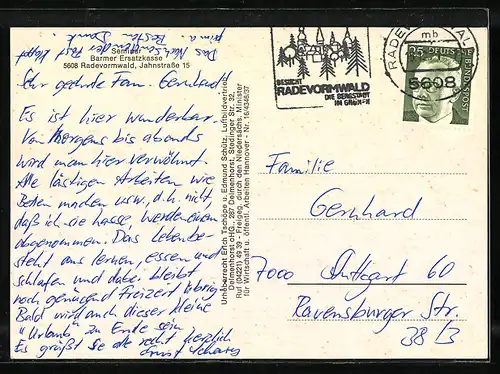 Das Nachsenden der Post klappt
prima. Besten Dank.
Seminar
Barmer Ersatzkasse
5608 Radevormwald, Jahnstraße 15
Sehr geehrte Fam. Gernhard!
Es ist hier wunderbar.
Von Morgens bis abends
wird man hier verwöhnt.
Alle lästigen Arbeiten wie
Betten machen usw., d.h. nicht,
daß ich sie hasse, werden einem
abgenommen. Das Leben be-
steht aus lernen, essen und
schlafen und dabei bleibt
noch genügend Freizeit übrig.
Bald wird auch dieser kleine
"Urlaub" zu Ende sein
Es grüßt Sie alle recht herzlich
Urheberrecht Erich Tschöpe u. Edmund Schütz, Luftbildvertrieb
Delmenhorst oHG., 287 Delmenhorst, Stedinger Str. 32,
Ruf (04221) 49 39 - Freigeg. durch den Niedersächs. Minister
für Wirtschaft u. öffentl. Arbeiten Hannover - Nr. 16/4346/37
BESUCHT
RADEVORMWALD
DIE BERGSTADT
IM GRÜNEN
mb
5608
25
DEUTSCHE
BUNDESPOST
Familie
Gernhard
7000 Stuttgart 60
Ravensburger Str.
38/3